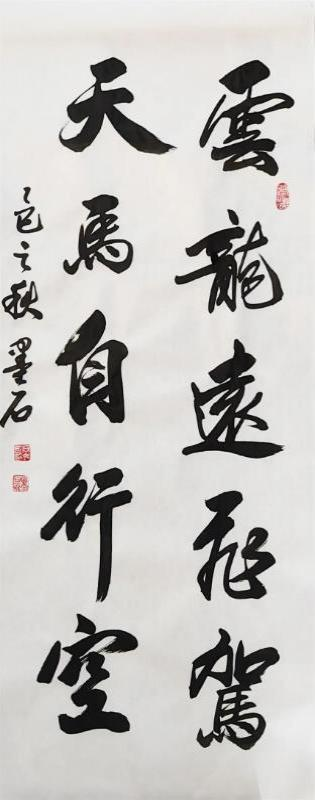 雲龍遠飛駕
天馬自行空
乙巳之秋墨石